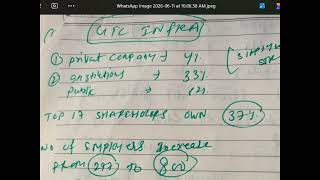 WhatsApp Image 2026-06-11 at 10.06.38 AM.jpeg
GTC INFRA
① private company → 4%
② institutions → 33%
public → 62%
TOP 17 SHAREHOLDERS OWN 37%
NO OF EMPLOYEES increase
FROM 297 to 800